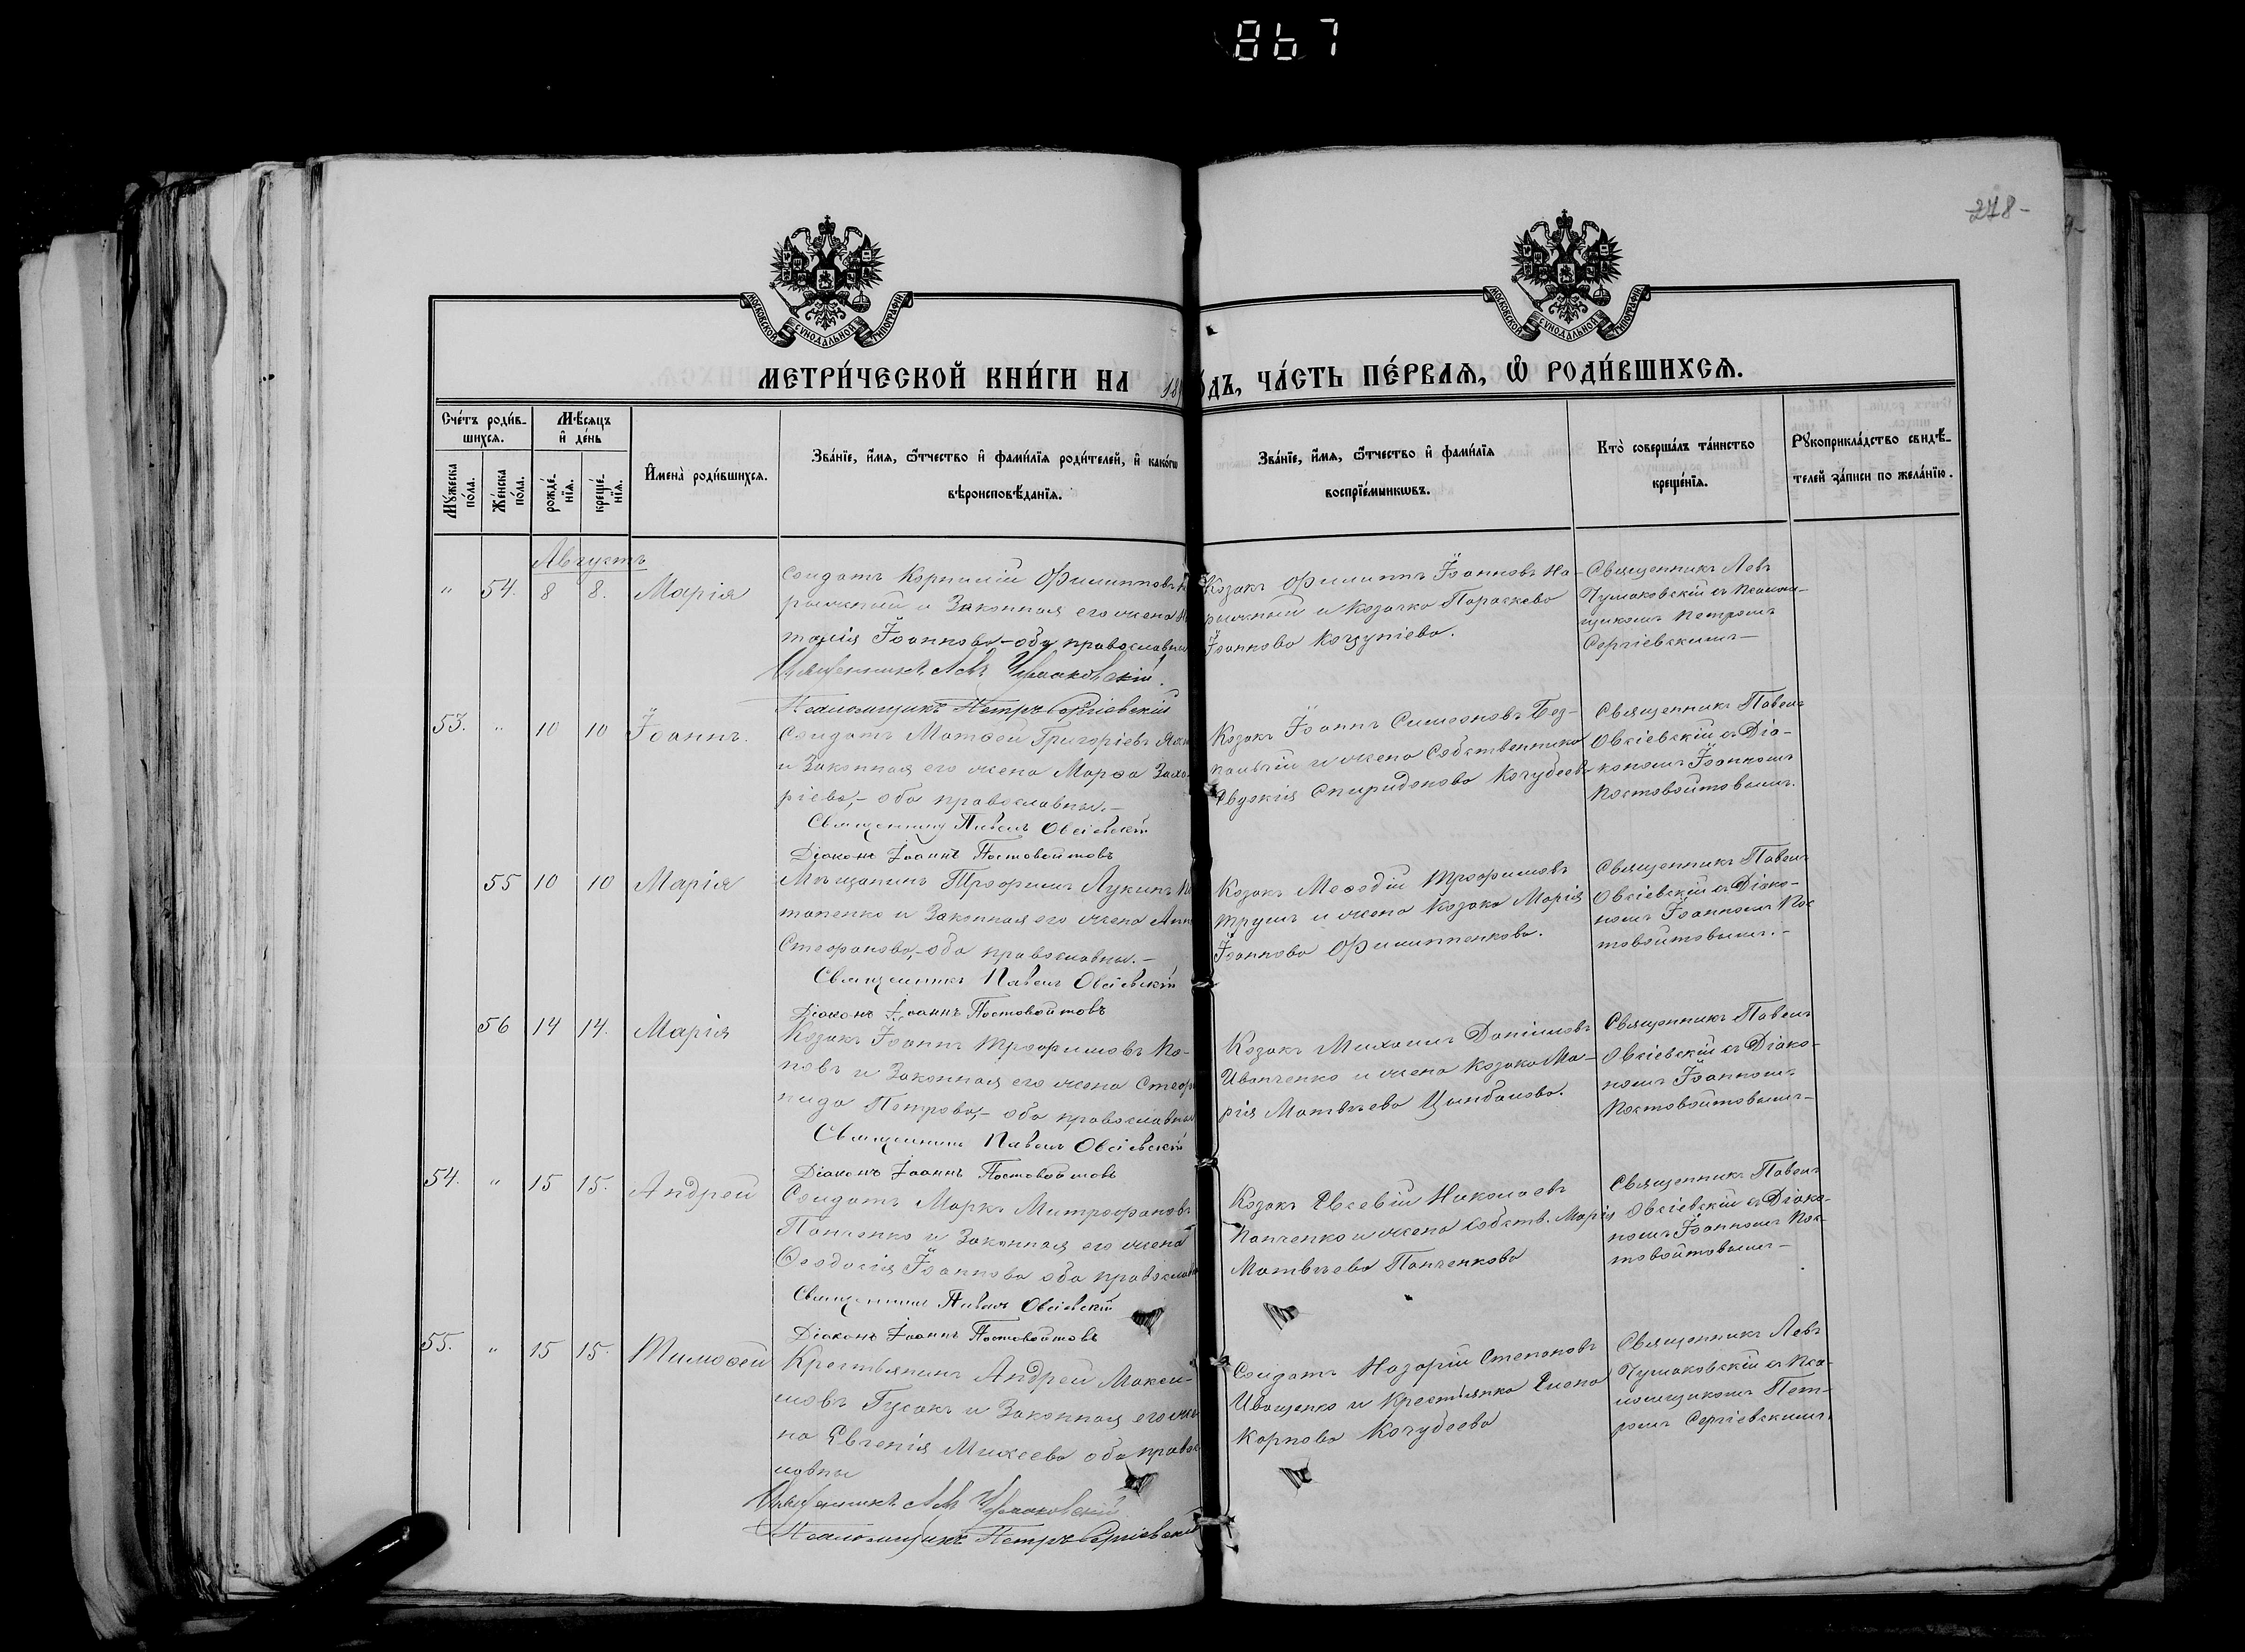 867
278-
МОСКОВСКОЙ СѴНОДАЛЬНОЙ ТИПОГРАФІИ
МОСКОВСКОЙ СѴНОДАЛЬНОЙ ТИПОГРАФІИ
МЕТРИ́ЧЕСКОЙ КНИ́ГИ НА 18
ДЪ, ЧА́СТЬ ПЕ́РВАѦ, Ѿ РОДИ́ВШИХСѦ.
Сче́тъ роди́в-
шихсѧ.
Мѣ́сѧцъ
и҆ де́нь
Мꙋ́жеска по́ла.
Же́нска по́ла.
рожде́нїѧ.
креще́нїѧ.
И҆мена̀ роди́вшихсѧ.
Зва́нїе, и҆́мѧ, ѻ҆́тчество и҆ фами́лїѧ роди́телей, и҆ како́гѡ
вѣроисповѣ́данїѧ.
Зва́нїе, и҆́мѧ, ѻ҆́тчество и҆ фами́лїѧ
воспрїе́мникѡвъ.
Кто̀ соверша́лъ та́инство
креще́нїѧ.
Рꙋкоприкла́дство свидѣ́-
телей за́писи по жела́нїю.
Августъ
" 54. 8 8. Марія
Солдатъ Корнилій Филипповъ
рыжный и законная его жена
талія Іоаннова,-оба православны
Священникъ Левъ Чумаковскій.
Псаломщикъ Петръ Сергіевскій
Козакъ Филиппъ Іоанновъ На-
рыжный и козачка Параскева
Іоаннова Коцупіева.
Священникъ Левъ
Чумаковскій съ псалом-
щикомъ Петромъ
Сергіевскимъ—
53. " 10 10 Іоаннъ.
Солдатъ Матѳей Григоріевъ
и законная его жена Марѳа Заха
ріева,- оба православны.-
Священникъ Павелъ Овсіевскій
Діаконъ Іоаннъ Постовойтовъ
Козакъ Іоаннъ Симеоновъ Без-
палый и жена собственника
Евдокія Спиридонова Кочубеева
Священникъ Павелъ
Овсіевскій съ Діа-
кономъ Іоанномъ
Постовойтовымъ.
55 10 10 Марія
Мѣщанинъ Трофимъ Лукинъ
тапенко и законная его жена Анна
Стефанова,-оба православны.-
Священникъ Павелъ Овсіевскій
Діаконъ Іоаннъ Постовойтовъ
Козакъ Меѳодій Трофимовъ
Трушъ и жена козака Марія
Іоаннова Филиппенкова.
Священникъ Павелъ
Овсіевскій съ Діако-
номъ Іоанномъ Пос
товойтовымъ.-
56 14 14. Марія
Козакъ Іоаннъ Трофимовъ По-
повъ и законная его жена Стефа
нида Петрова,- оба православны
Священникъ Павелъ Овсіевскій
Діаконъ Іоаннъ Постовойтовъ
Козакъ Михаилъ Даніиловъ
Иванченко и жена козака Ма-
рія Матвѣева Цымбалова.
Священникъ Павелъ
Овсіевскій съ Діако-
номъ Іоанномъ
Постовойтовымъ-
54. " 15 15. Андрей
Солдатъ Маркъ Митрофановъ
Панченко и законная его жена
Ѳеодосія Іоаннова оба православны
Священникъ Павелъ Овсіевскій
Діаконъ Іоаннъ Постовойтовъ
Козакъ Евсевій Николаевъ
Панченко и жена собств. Марія
Матвѣева Панченкова
Священникъ Павелъ
Овсіевскій съ Діако-
номъ Іоанномъ Пос-
товойтовымъ-
55. " 15 15. Тимоѳей
Крестьянинъ Андрей Макси-
мовъ Гусакъ и законная его же
на Евгенія Михеева оба правос
лавны
Священникъ Левъ Чумаковскій
Псаломщикъ Петръ Сергіевскій
Солдатъ Назарій Степановъ
Иващенко и крестьянка Елена
Карпова Кочубеева
Священникъ Левъ
Чумаковскій съ Пса-
ломщикомъ Пет-
ромъ Сергіевскимъ.